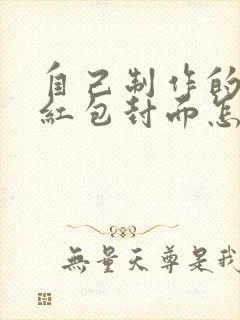 自己制作的
紅包封面怎
無量天尊是我